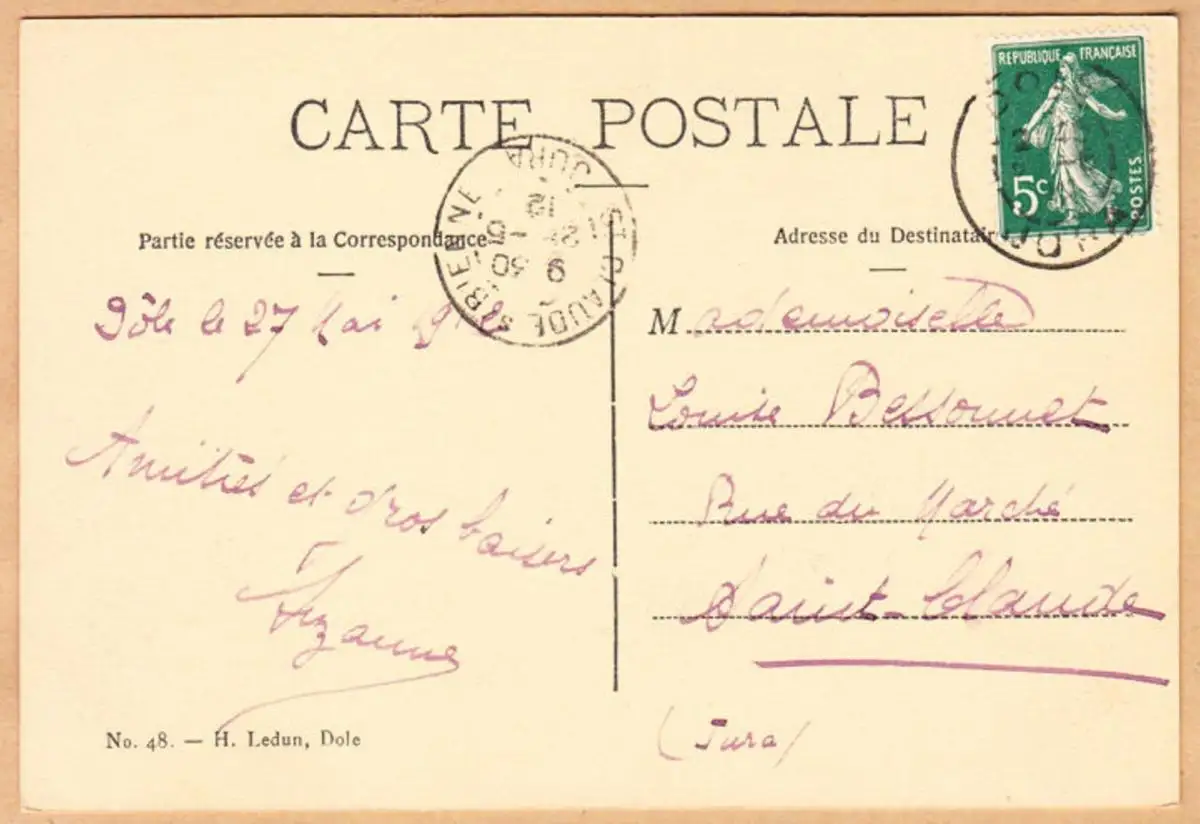 CARTE POSTALE
RÉPUBLIQUE FRANÇAISE
5c
POSTES
ST CLAUDE S/BIENNE
JURA
9 30
12
Partie réservée à la Correspondance
Adresse du Destinataire
Dôle le 27 Mai
Amitiés et gros baisers
Suzanne
Mademoiselle
Louise Bessonnet
Rue du Marché
Saint-Claude
(Jura)
No. 48. — H. Ledun, Dole